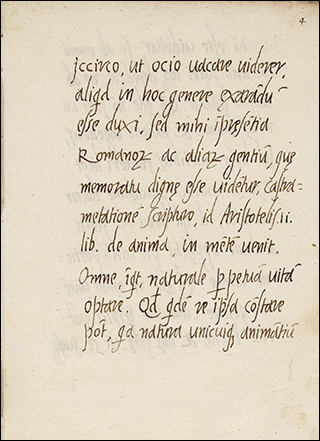 4
jccirco, ut ocio uacare uiderer,
aliqd in hoc genere exarādū
esse duxi. Sed mihi īpresētia
Romanoꝝ ac aliaꝝ gentiū, quę
memoratu dignę esse uidētur, castra=
metationē scripturo, id Aristotelis .ii.
lib. de anima, in mētē uenit.
Omne, iqt, naturale ꝑpetuā uitā
optare. Qđ qdē re ip̄sa cōstare
pōt, qa natura unicuiqꝫ animātiū